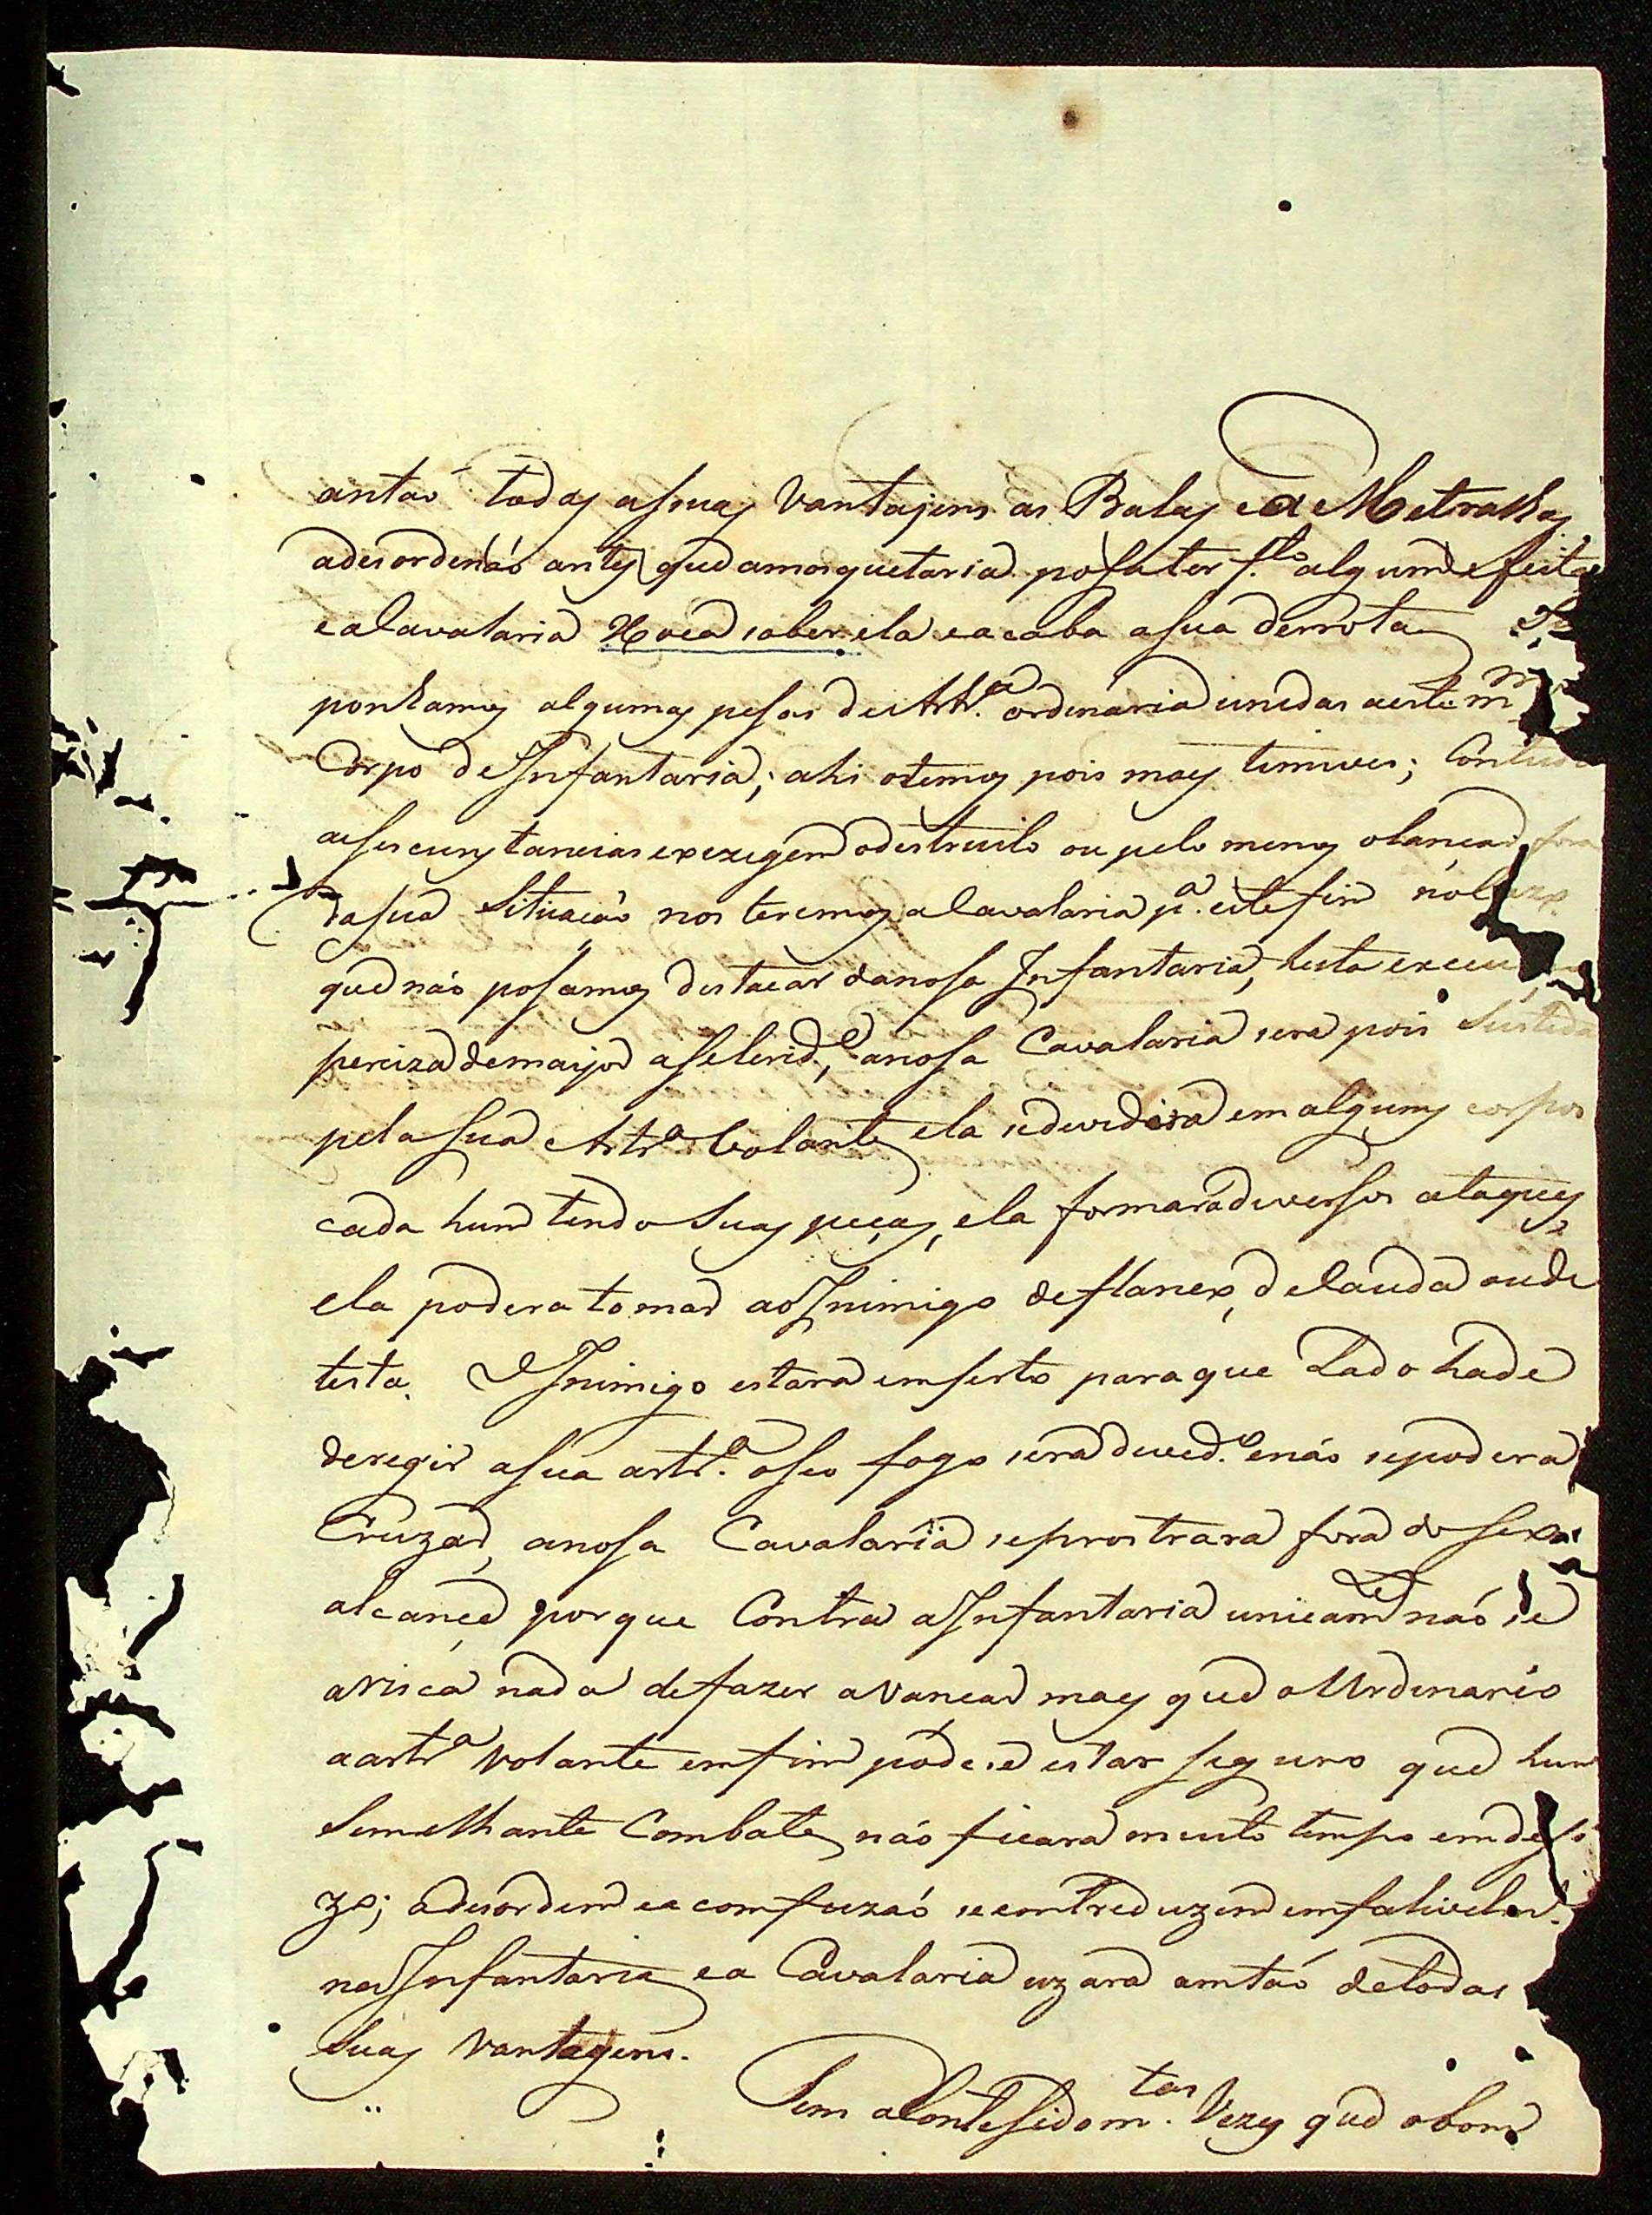 antaó todas assuas Vantajens as Balas e a Metralhas
adesordenáo antes que amosquetaria possater s.to algum efeito
e a Cavalaria Hoca saber ela e acaba asua derrota Su
ponhamos algumas pesas de Artr.a ordinaria unidas aeste m
Corpo de Infantaria; ahi otemos pois mays temivel; Contudo
assescunstancias exzegem odestruilo ou pelo menos olançar fora
dasua Situacáo nos teremos a Cavalaria p.a este fim
que náo posamos destacar danosa Infantaria, hesta
perciza demaijor asselerid.e, anosa Cavalaria sera pois Sustida
pela Sua Artr.a Volante ela sedevidira em alguns corpos
cada hum tendo Suas peças, ela formara diversos ataques
ela podera tomar ao Inimigo deflanco, de Cauda oude
testa. O Inimigo estara emserto para que Lado hade
deregir asua artr.a oseo fogo sera deved.o enáo sepodera
Cruzar, anosa Cavalaria seprostrara fora do
alcance por que Contra a Infantaria unicam.te náo se
arisca nada defazer avancar mays que o Urdinario
a artr.a Volante emfim podese estar seguro que hum
Semelhante Combate náo ficara muito tempo em
zo; adesordem ea comfuzaó secontreduzem emfalivelm.
na Infantaria ea Cavalaria uzara amtaó detodas
Suas Vantagens.
Tem aContesido m.tas Vezes que obom